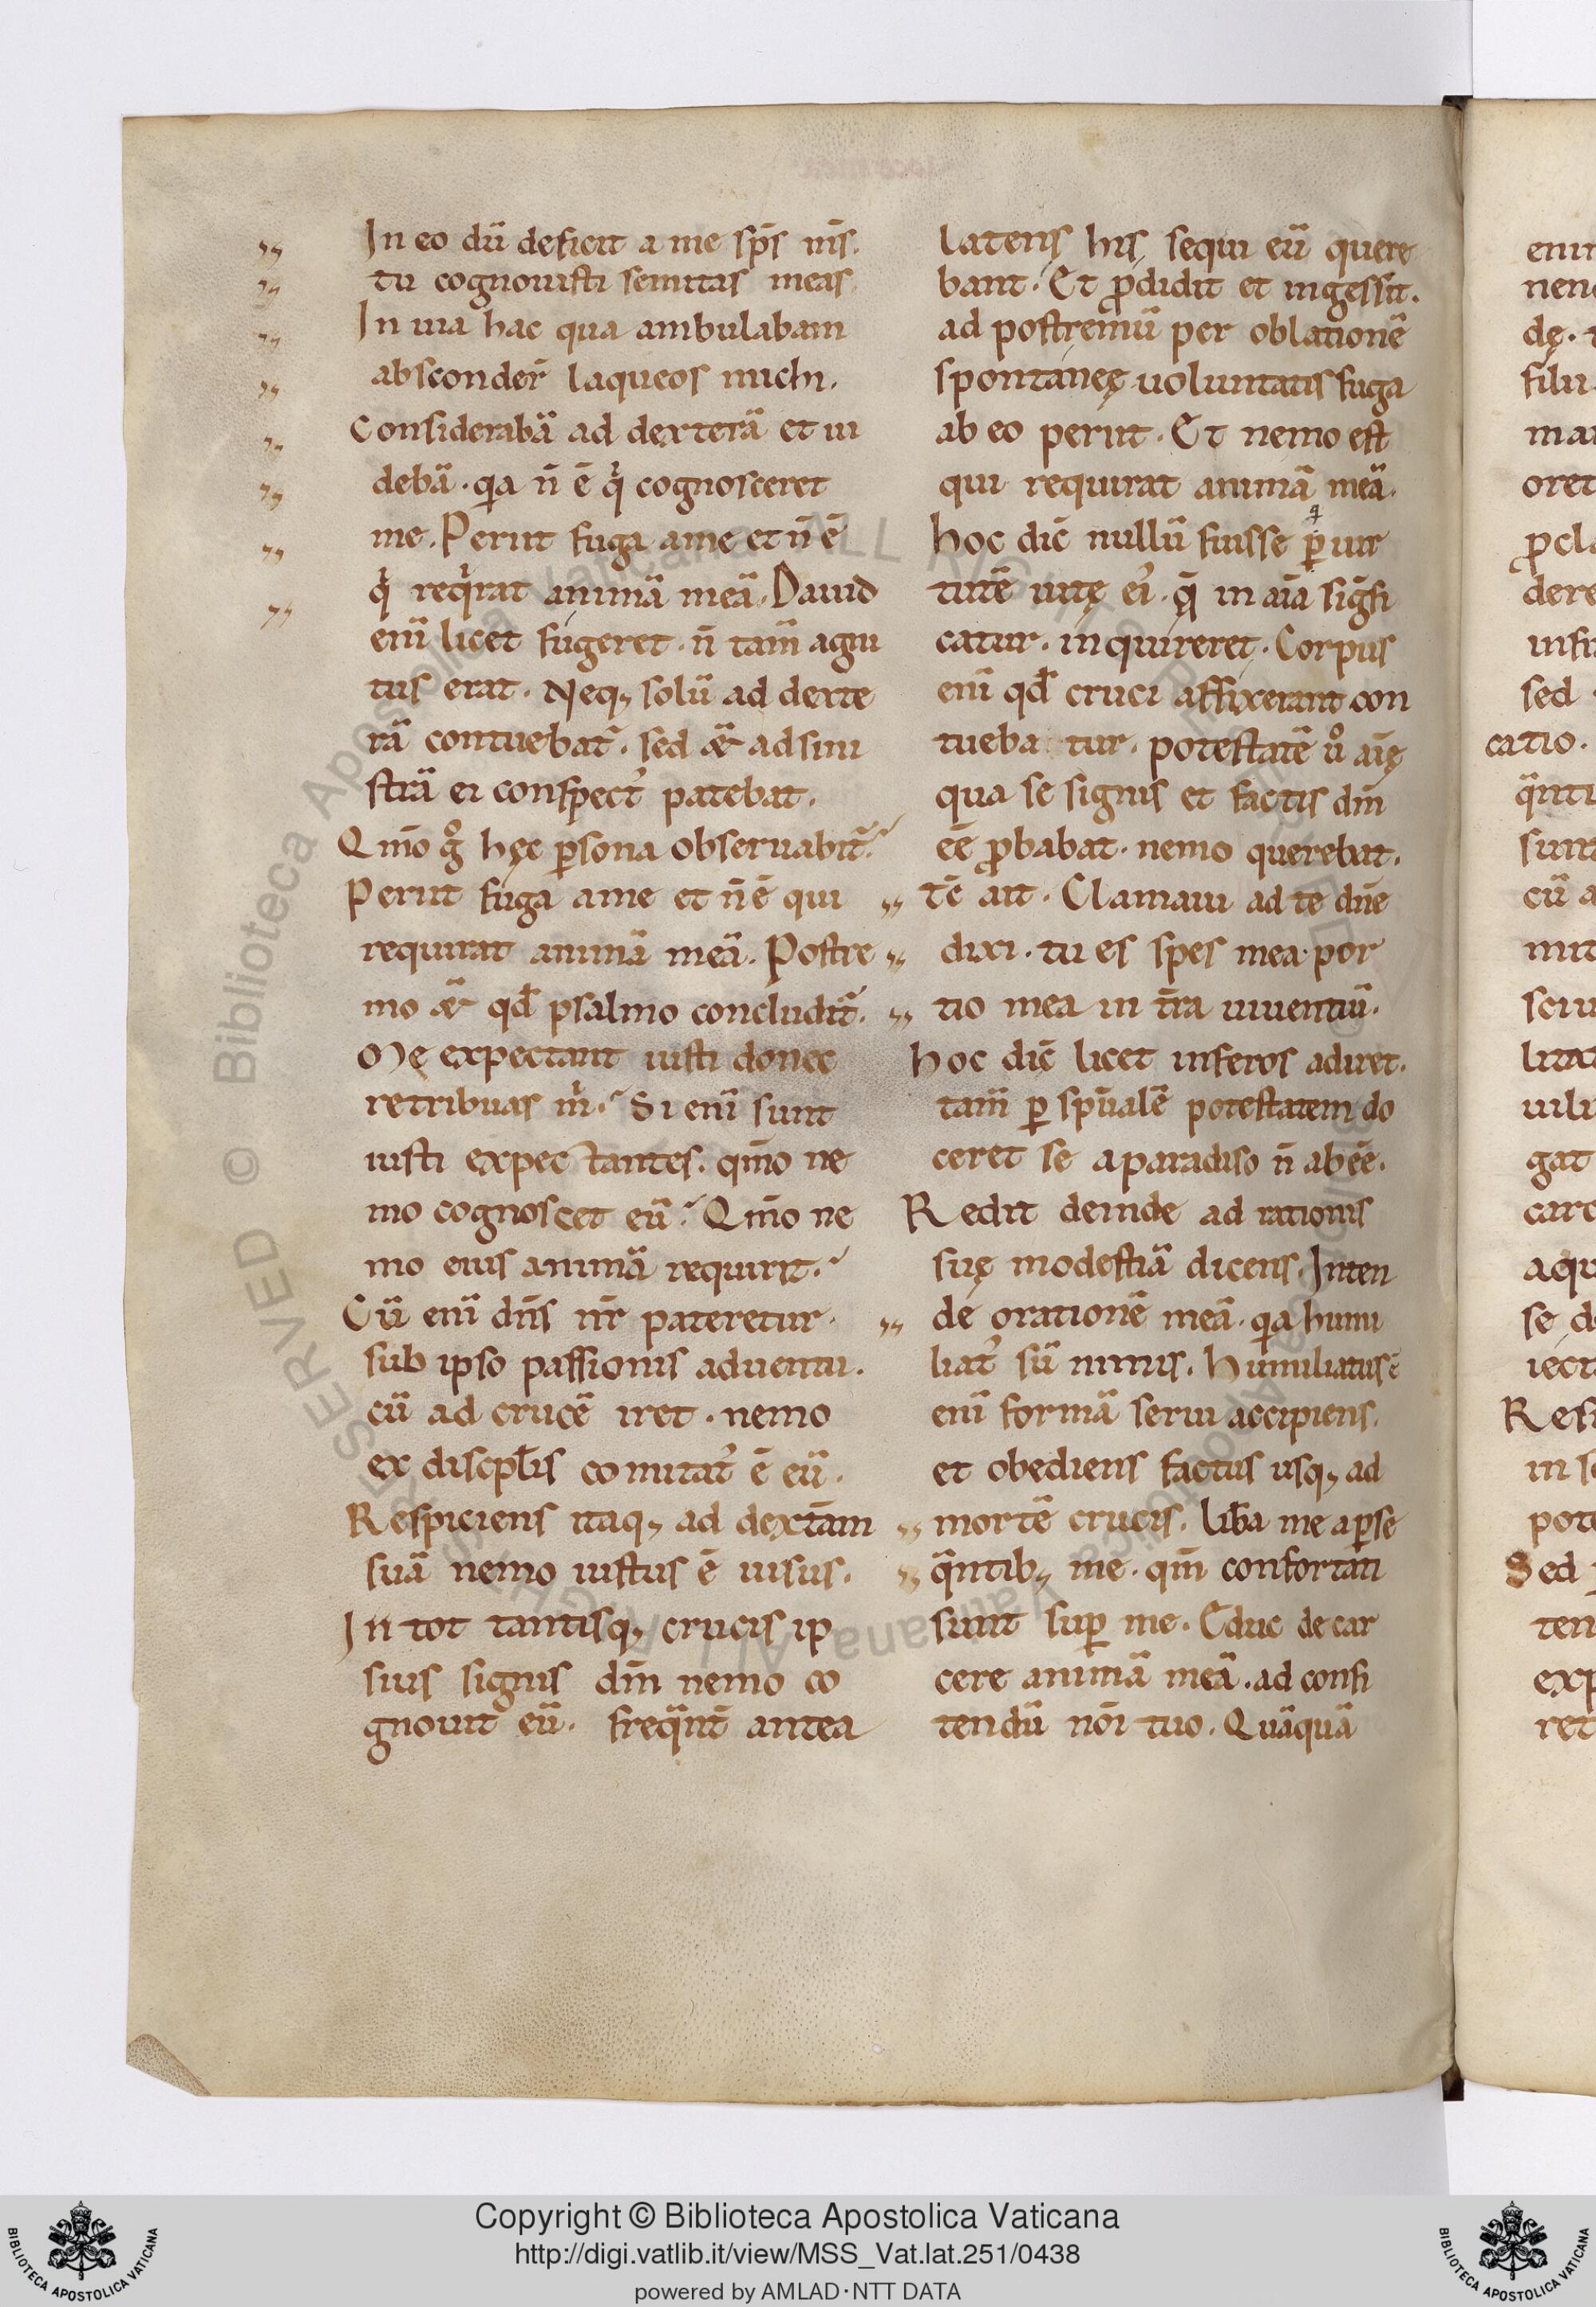 In eo dū deficit a me sp̄s m̄s.
tu cognouisti semitas meas.
In uia hac qua ambulabam
absconder̄ laqueos michi.
Considerabā ad dexterā et ui
debā. qia n̄ ē qi cognosceret
me. Periit fuga a me et n̄ ē
qi reqirat animā meā. Dauid
enī licet fugeret. n̄ tam̄ agni
tus erat. Neq; solū ad dexte
rā contuebat̄. sed &̄ ad sini
strā ei conspect' patebat.
Qm̄o go hęc ꝑsona obseruabit̄?
Periit fuga a me et n̄ ē qui
requirat animā meā. Postre
mo &̄ qd̄ psalmo concludit̄.
Me expectant iusti donec
retribuas mi? Si enī sunt
iusti expectantes. qm̄o ne
mo cognoscet eū? Qm̄o ne
mo eius animā requirit?
Cū enī dn̄s nr̄ pateretur.
sub ipso passionis aduentu.
cū ad crucē iret. nemo
ex discipl̄is comitat' ē eū.
Respiciens itaq; ad dext̄am
suā nemo iustus ē uisus.
In tot tantisq; crucis ip
sius signis dm̄ nemo co
gnouit eū. freq̄nt̄ antea
latens his sequi eū quere
bant. Et ꝓdidit et ingessit.
ad postremū per oblationē
spontaneę uoluntatis fuga
ab eo periit. Et nemo est
qui requirat animā meā.
hoc dic̄ nullū fuisse qi ꝑ uir
tutē uitę ei'. q̄ in aīa sigfi
catur. inquireret. Corpus
enī qd̄ cruci affixerant con
tueba tur. potestatē uo aīę
qua se signis et factis dm̄
ēē ꝓbabat. nemo querebat.
tc̄ ait. Clamaui ad te dn̄e
dixi. tu es spes mea. por
tio mea in t̄ra uiuentiū.
hoc dic̄ licet inferos adiret.
tam̄ ꝑ sp̄ualē potestatem do
ceret se a paradiso n̄ abēē.
Redit deinde ad rationis
suę modestiā dicens. Inten
de orationē meā. qia humi
liat' sū nimis. humiliatus ē
enī formā serui accipiens.
et obediens factus usq; ad
mortē crucis. lib̄a me a ꝑse
q̄ntib; me. qm̄ confortati
sunt suꝑ me. Educ de car
cere animā meā. ad confi
tendū nōi tuo. Quāquā
catio.
Sed
Copyright © Biblioteca Apostolica Vaticana
http://digi.vatlib.it/view/MSS_Vat.lat.251/0438
powered by AMLAD·NTT DATA